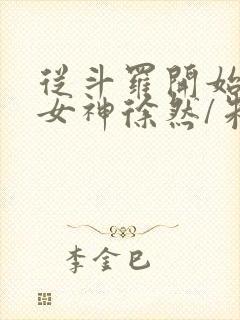 從斗羅開始
女神徐然/
李金巳